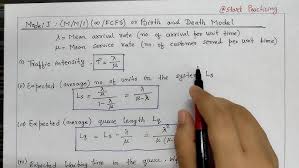 @Start Practicing
Model I : (M/M/1) (∞/FCFS) or Birth and Death Model
λ = Mean arrival rate (no. of arrival per unit time)
μ = Mean service rate (no. of customer served per unit time)
(i) Traffic intensity - ρ = λ/μ
(ii) Expected (average) no. of units in the system Ls
Ls = λ/(μ-λ)
(iii) Expected (average) queue length Lq
Lq = Ls - λ/μ = λ²/μ(
(iv) Expected waiting time in the queue